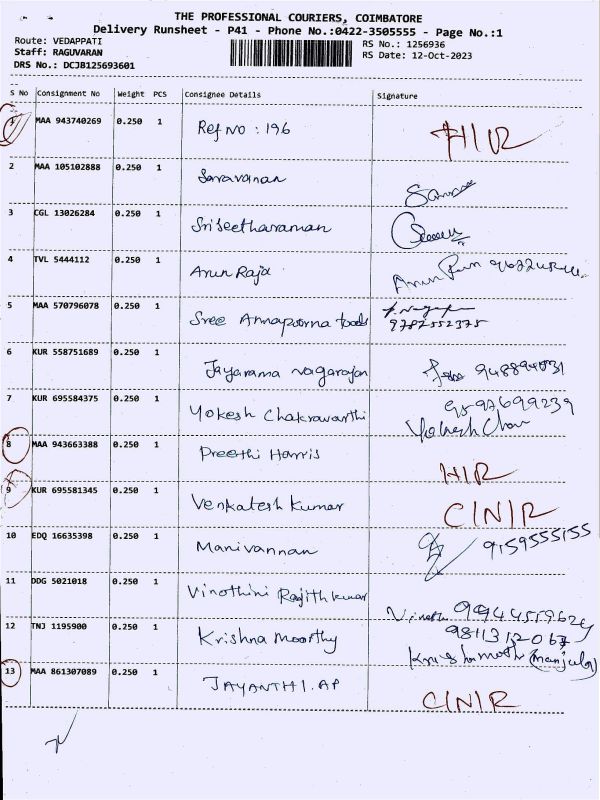 THE PROFESSIONAL COURIERS, COIMBATORE
Delivery Runsheet - P41 - Phone No.:0422-3505555 - Page No.:1
Route: VEDAPPATI
Staff: RAGUVARAN
DRS No.: DCJB125693601
RS No.: 1256936
RS Date: 12-Oct-2023
S No Consignment No Weight PCS Consignee Details Signature
1 MAA 943740269 0.250 1 Ref No : 196 H/I/R
2 MAA 105102888 0.250 1 Saravanan
3 CGL 13026284 0.250 1 Sriseetharaman
4 TVL 5444112 0.250 1 Arun Raja Arun
5 MAA 570796078 0.250 1 Sree Annapoorna foods
9787552375
6 KUR 558751689 0.250 1 Jayarama nagarajan
7 KUR 695584375 0.250 1 Yokesh Chakravarthi
Yokesh
8 MAA 943663388 0.250 1 Preethi Harris H/R
9 KUR 695581345 0.250 1 Venkatesh kumar C/N/R
10 EDQ 16635398 0.250 1 Manivannan 9159555155
11 DDG 5021018 0.250 1 Vinothini Rajith kumar
12 TNJ 1195900 0.250 1 Krishna Moorthy
(Manjula)
13 MAA 861307089 0.250 1 JAYANTHI.AP C/N/R